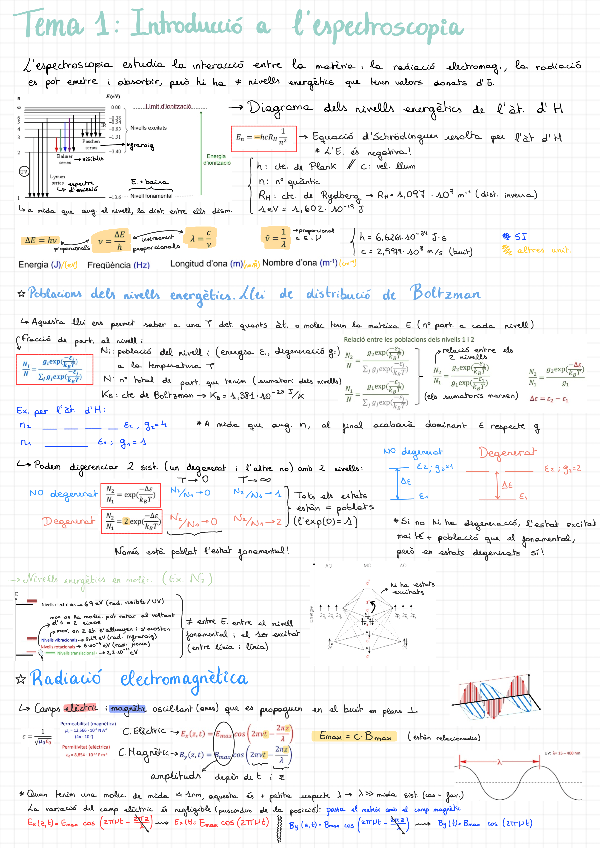 Tema 1: Introducció a l'espectroscopia
L'espectroscopia estudia la interacció entre la matèria i la radiació electromag., la radiació
es pot emetre i absorbir, però hi ha ≠ nivells energètics que tenen valors donats d'E.
→ Diagrama dels nivells energètics de l'àt. d'H
E(eV)
0.00
Límit d'ionització
Nivells excitats
Paschen series
Balmer series → visibles
Lyman series
Energia d'ionització
E + baixa
Nivell fonamental
Eₙ = -hcR_H 1/n² → Equació d'Schrödinguer resolta per l'àt d'H
* L'E. és negativa!
h: cte. de Plank // c: vel. llum
n: nº quàntic
R_H: cte. de Rydberg → R_H = 1,097 · 10⁷ m⁻¹ (dist. inversa)
1 eV = 1,602 · 10⁻¹⁹ J
↳ a mida que aug. el nivell, la dist. entre ells dism.
ΔE = hν
ν = ΔE/h
λ = c/ν
ν̃ = 1/λ
proporcionals
inversament proporcionals
h = 6,6261 · 10⁻³⁴ J·s
c = 2,9979 · 10⁸ m/s (buit)
* SI
altres unit.
Energia (J) Freqüència (Hz) Longitud d'ona (m) Nombre d'ona (m⁻¹)
☆ Poblacions dels nivells energètics. Llei de distribució de Boltzman
↳ Aquesta llei ens permet saber a una T det. quants àt. o molec tenen la mateixa E (nº part a cada nivell)
Fracció de part. al nivell i
Nᵢ: població del nivell i (energia Eᵢ, degeneració gᵢ)
a la temperatura T
N: nº total de part. que tenim (sumatori dels nivells)
K_B: cte de Boltzman → K_B = 1,381 · 10⁻²³ J/K
Relació entre les poblacions dels nivells 1 i 2
relació entre els 2 nivells
(els sumatoris marxen)
Δε = ε₂ − ε₁
Ex. per l'àt d'H:
n₂ ε₂, g₂ = 4
n₁ ε₁, g₁ = 1
* A mida que aug. n, al final acabarà dominant E respecte g
↳ Podem diferenciar 2 sist. (un degenerat i l'altre no) amb 2 nivells:
T → 0 T → ∞
NO degenerat N₂/N₁ = exp(-Δε/k_BT) N₂/N₁ → 0 N₂/N₁ → 1
Degenerat N₂/N₁ = 2exp(-Δε/k_BT) N₂/N₁ → 0 N₂/N₁ → 2
Tots els estats
estan = poblats
(l'exp(0) = 1)
Només està poblat l'estat fonamental!
NO degenerat Degenerat
ε₂; g₂=1 ε₂; g₂=2
Δε Δε
ε₁ ε₁
* Si no hi ha degeneració, l'estat excitat
mai té + població que el fonamental,
però en estats degenerats sí!
→ Nivells energètics en molèc. (Ex N₂)
≠ entre E. entre el nivell
fonamental i el 1er excitat
(entre línia i línia)
hi ha estats excitats
☆ Radiació electromagnètica
↳ Camps elèctric i magnètic oscil·lant (ones) que es propaguen en el buit en plans ⊥
Permeabilitat (magnètica)
Permitivitat (elèctrica)
C. Elèctric → Eₓ(z,t) = E_max cos(2πνt − 2πz/λ)
C. Magnètic → B_y(z,t) = B_max cos(2πνt − 2πz/λ)
amplituds depèn de t i z
E_max = c · B_max (estan relacionades)
* Quan tenim una molèc. de mida < 1nm, aquesta és + petita respecte λ → λ >> mida sist.
La variació del camp elèctric és negligible (prescindim de la posició): passa el mateix amb el camp magnètic
Eₓ(z,t) = E_max cos (2πνt − 2πz/λ) → Eₓ(t) = E_max cos (2πνt) B_y(z,t) = B_max cos (2πνt − 2πz/λ) → B_y(t) = B_max cos (2πνt)